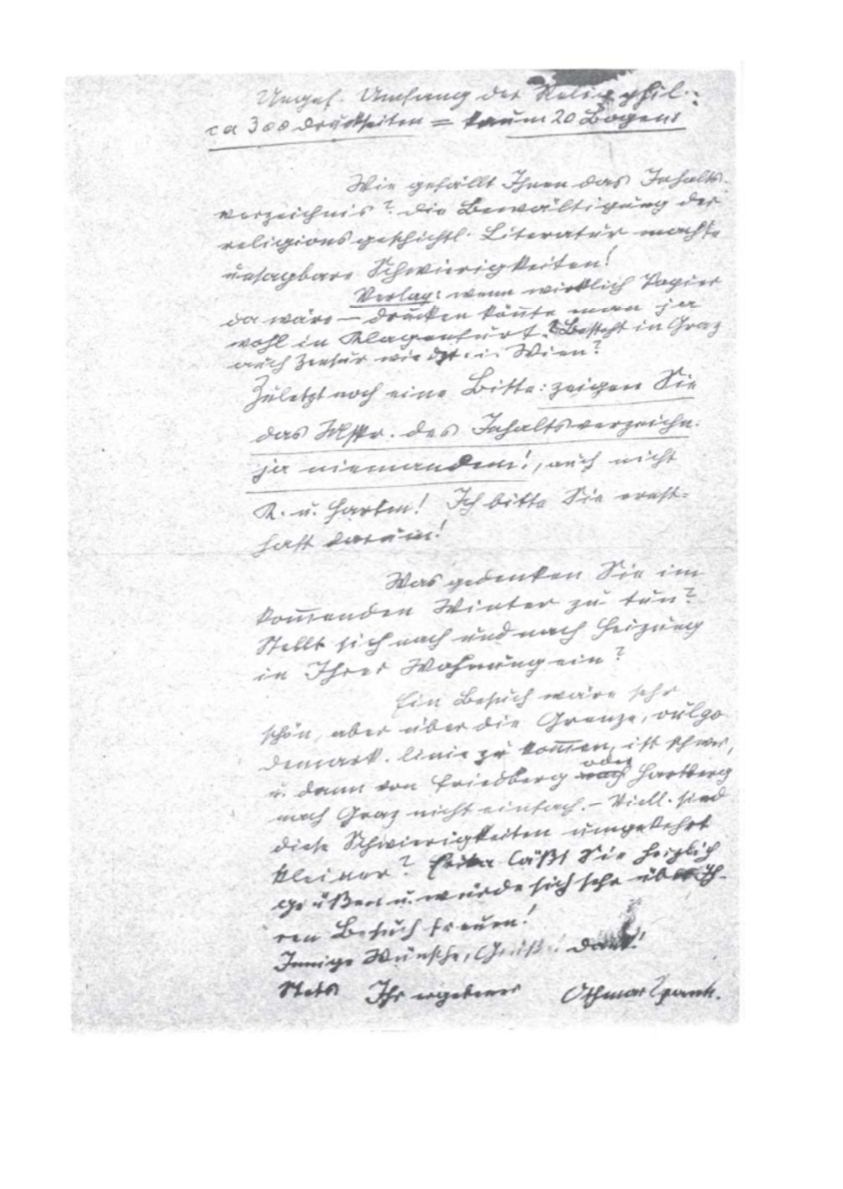 Ungef. Umfang der Religphil.:
ca 300 Druckseiten = kaum 20 Bogen!
Wie gefällt Ihnen das Inhalts-
verzeichnis? Die Bewältigung der
religionsgeschichtl. Literatur machte
unsagbare Schwierigkeiten!
Verlag: wenn wirklich Papier
da wäre — drucken könnte man ja
wohl in Klagenfurt? Besteht in Graz
auch Zensur wie in Wien?
Zuletzt noch eine Bitte: zeigen Sie
das Mskr. des Inhaltsverzeichn.
ja niemandem!, auch nicht
K. u. Harten! Ich bitte Sie ernst-
haft darum!
Was gedenken Sie im
kommenden Winter zu tun?
Stellt sich nach und nach Heizung
in Ihrer Wohnung ein?
Ein Besuch wäre sehr
schön, aber über die Grenze,
demark. linie zu kommen, ist schwer,
u. dann von Friedberg oder Hartberg
nach Graz nicht einfach. – Viell. sind
diese Schwierigkeiten umgekehrt
kleiner? Erika läßt Sie herzlich
grüßen u. würde sich sehr üb. Ih-
ren Besuch freuen!
Innige Wünsche, Grüße! Dank!
Stets Ihr ergebener Othmar Spann.